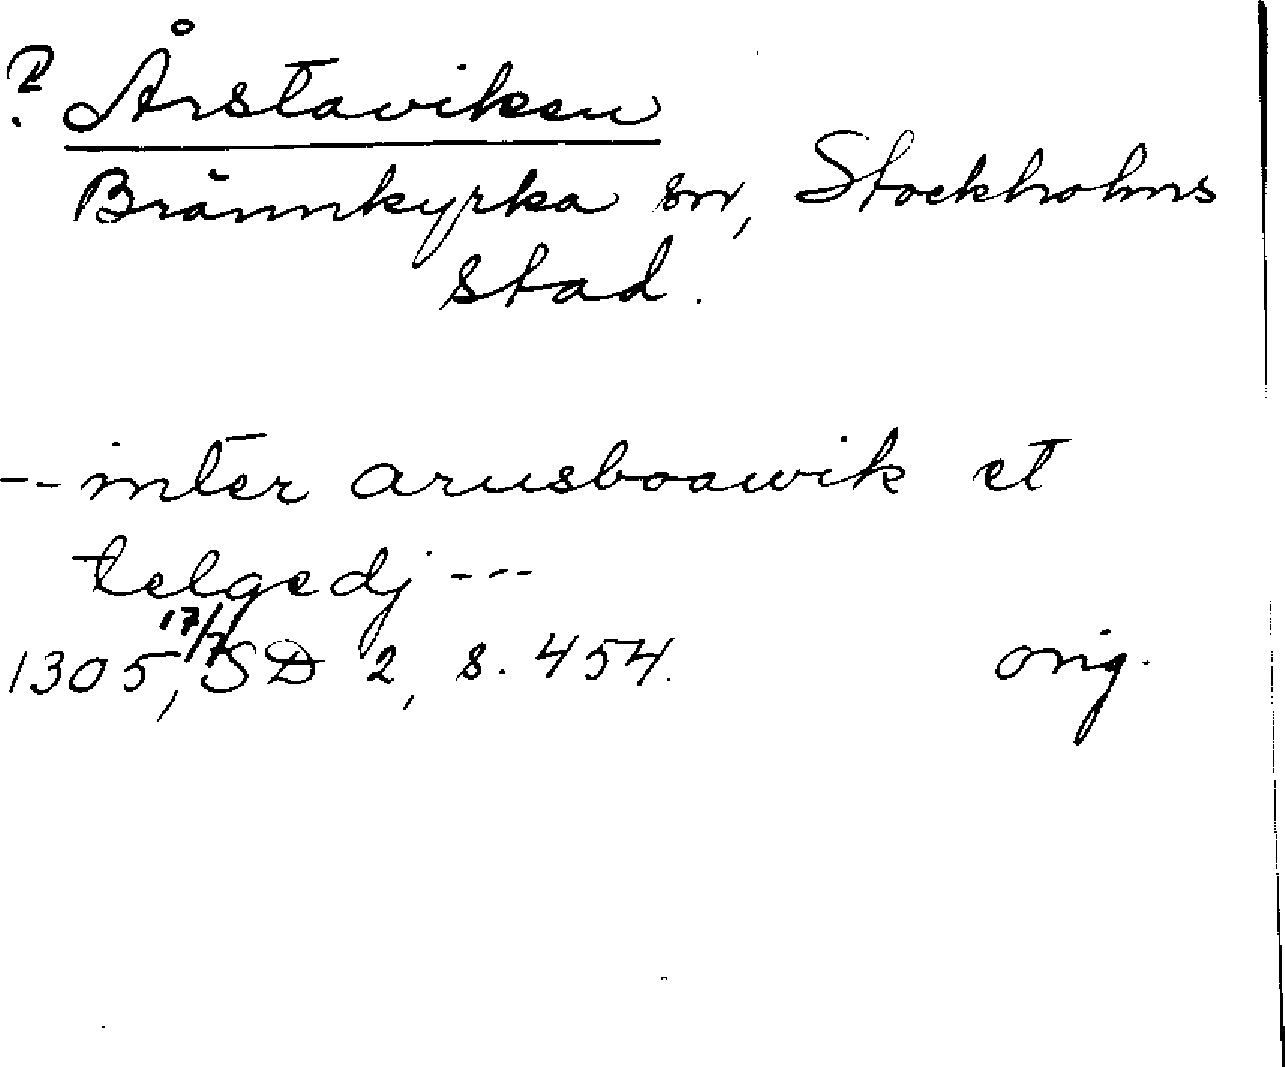 ? Årstaviken
Brännkyrka sn, Stockholms
stad.
-- inter arusboawik et
telgedj ---
1305 17/7, SD 2, s. 454. orig.